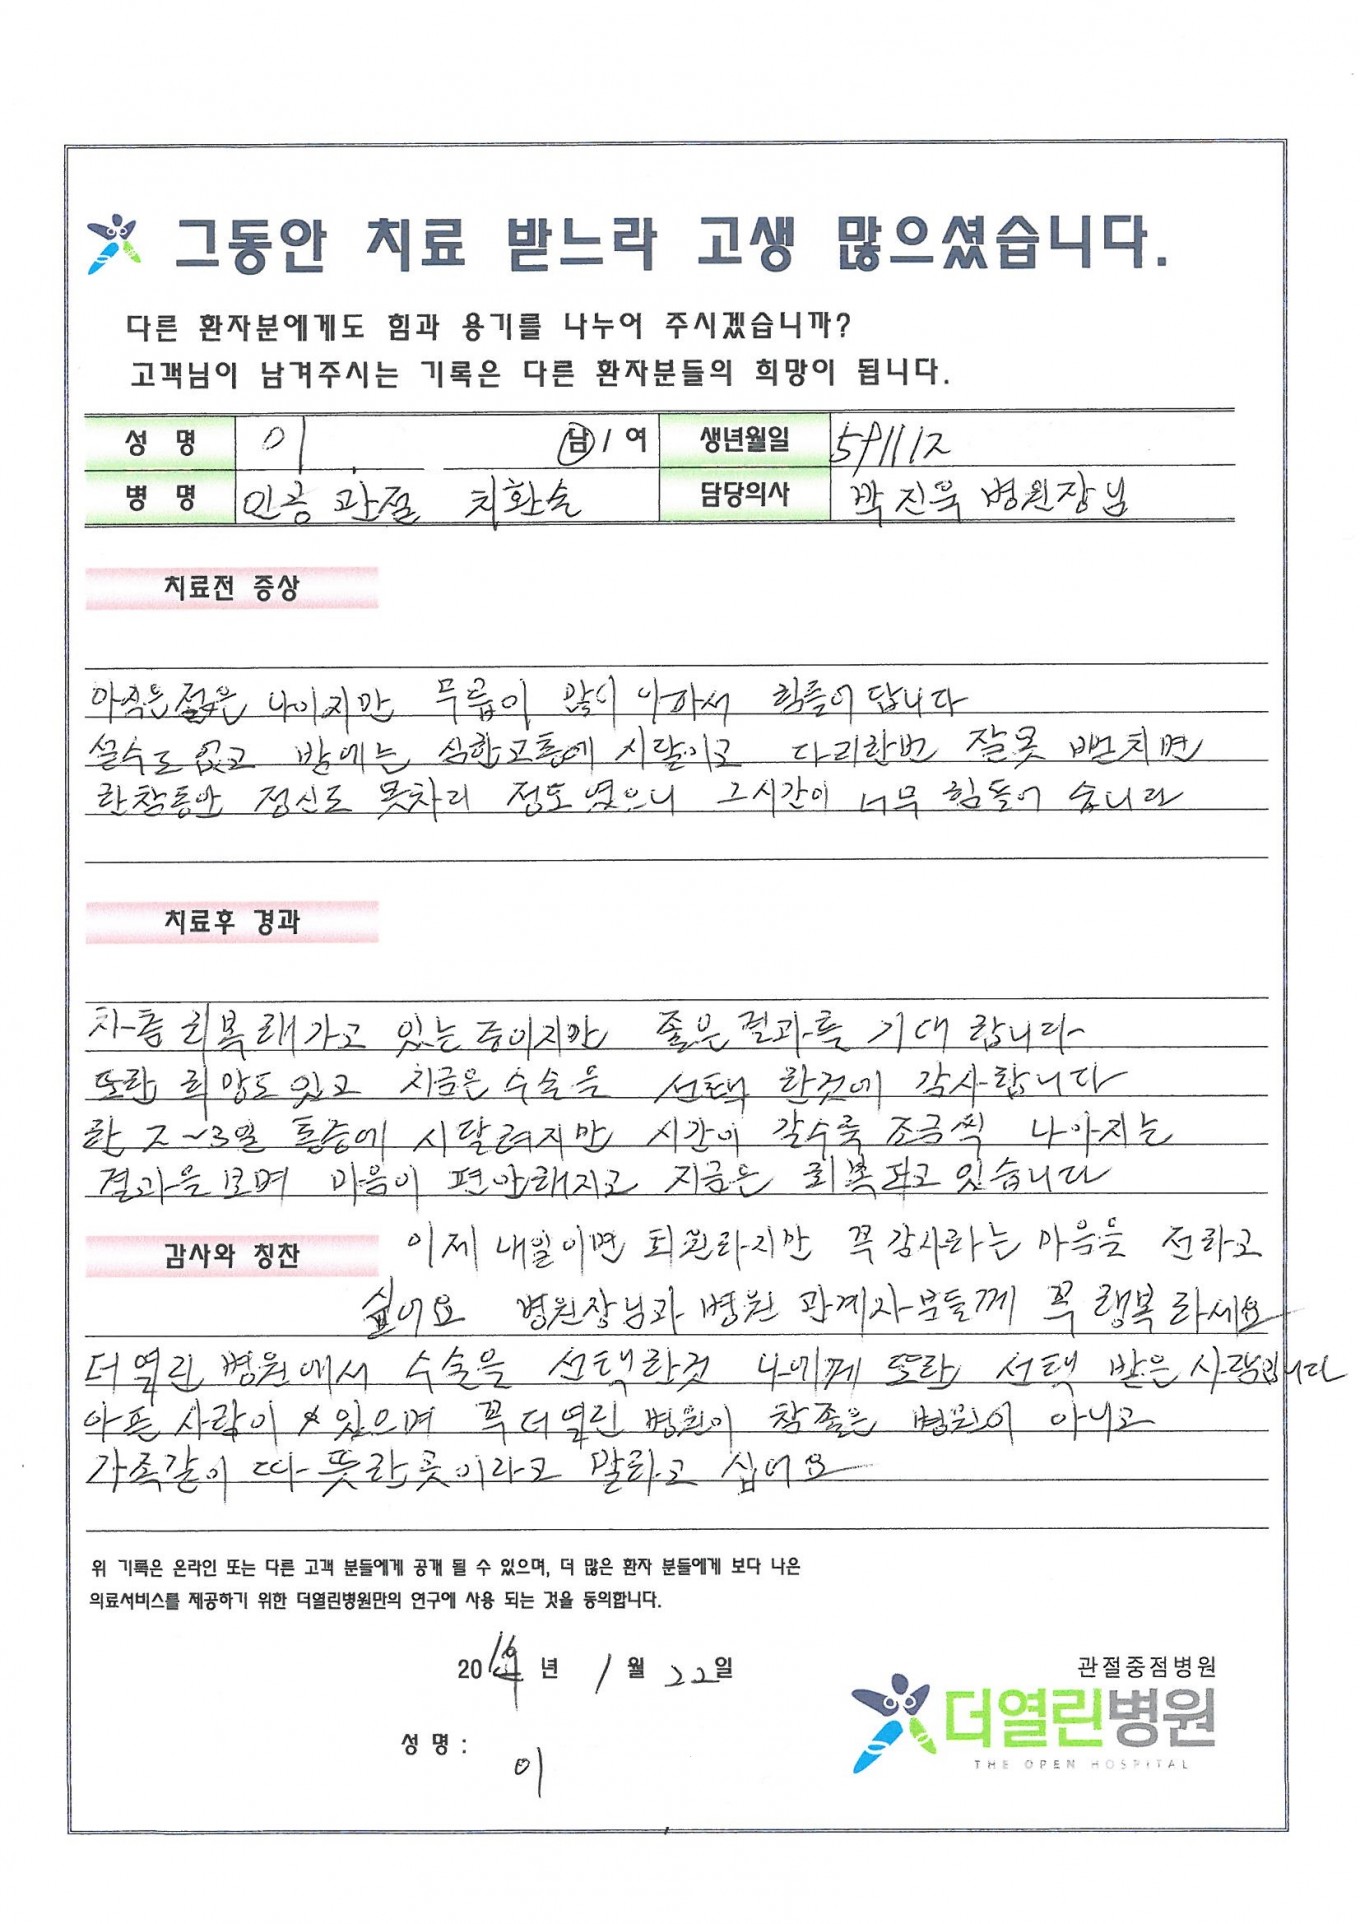 그동안 치료 받느라 고생 많으셨습니다.
다른 환자분에게도 힘과 용기를 나누어 주시겠습니까?
고객님이 남겨주시는 기록은 다른 환자분들의 희망이 됩니다.
성 명 이 남 / 여 생년월일 591112
병 명 인공 관절 치환술 담당의사 박진욱 병원장님
치료전 증상
아직은 젊은 나이지만 무릎이 많이 아파서 힘들어 답니다
쉴수도 없고 밤에는 심한고통에 시달이고 다리한번 잘못 뻗치면
한참동안 정신도 못차리 정도 였으니 그시간이 너무 힘들어 습니다
치료후 경과
차츰 회복해가고 있는 중이지만 좋은결과를 기대 합니다
또한 희망도 있고 지금은 수술을 선택 한것에 감사합니다
한 2~3일 통증에 시달려지만 시간이 갈수록 조금씩 나아지는
결과을 보며 마음이 편안해지고 지금은 회복되고 있습니다
감사와 칭찬 이제 내일이면 퇴원하지만 꼭 감사하는 마음을 전하고
싶어요 병원장님과 병원 관계자분들께 꼭 행복 하세요
더열린 병원에서 수술을 선택한것 나에께 또한 선택 받은 사람입니다
아픈 사람이 있으며 꼭 더열린 병원이 참좋은 병원이 아니고
가족같이 따뜻한 곳이라고 말하고 십어요
위 기록은 온라인 또는 다른 고객 분들에게 공개 될 수 있으며, 더 많은 환자 분들에게 보다 나은
의료서비스를 제공하기 위한 더열린병원만의 연구에 사용 되는 것을 동의합니다.
20 년 1 월 22일
관절중점병원
더열린병원
THE OPEN HOSPITAL
성 명 :
이